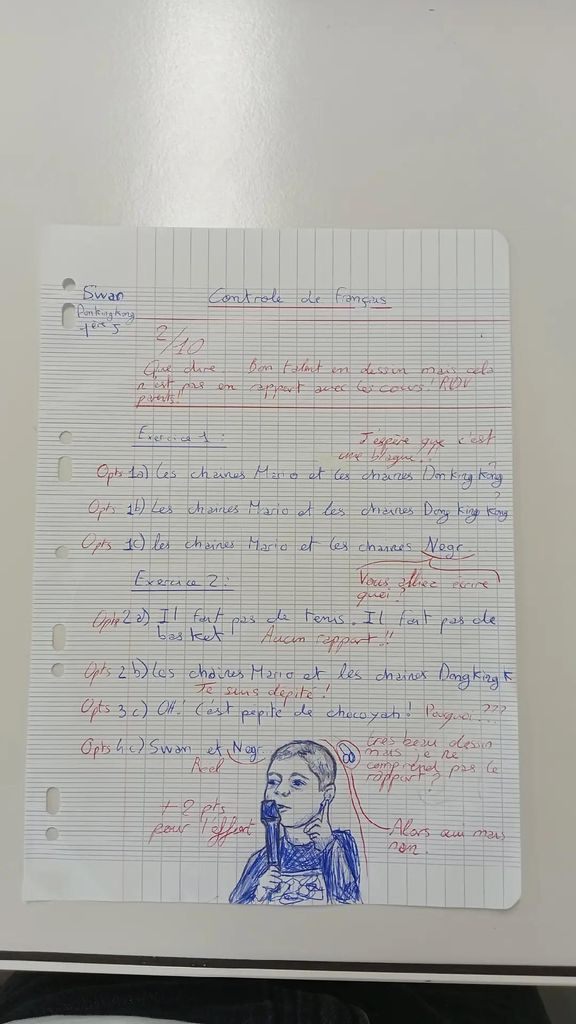 Swan
Controle de Français
DonkingKong
1ère 5
2/10
Que dire Bon talent en dessin mais cela
n'est pas en rapport avec les cours! RDV
parents!
Exercice 1:
J'espère que c'est
une blague!!
0pts 1a) Les chaines Mario et les chaines Donking Kong ?
0pts 1b) Les chaines Mario et les chaines Dong King Kong ?
0pts 1c) les chaines Mario et les chaines Negr.
Vous alliez écrire
quoi?
Exercice 2:
0pts 2a) Il fait pas de tenis. Il fait pas de
basket
Aucun rapport!!
0pts 2b) Les chaines Mario et les chaines DongKing K
Je suis dépité!
0pts 3c) OH! C'est pepite de chocoyah! Pourquoi???
0pts 4c) Swan et Negr
très beau dessin
mais je ne
comprend pas le
rapport?
+2 pts
pour l'effort
Alors oui mais
non.